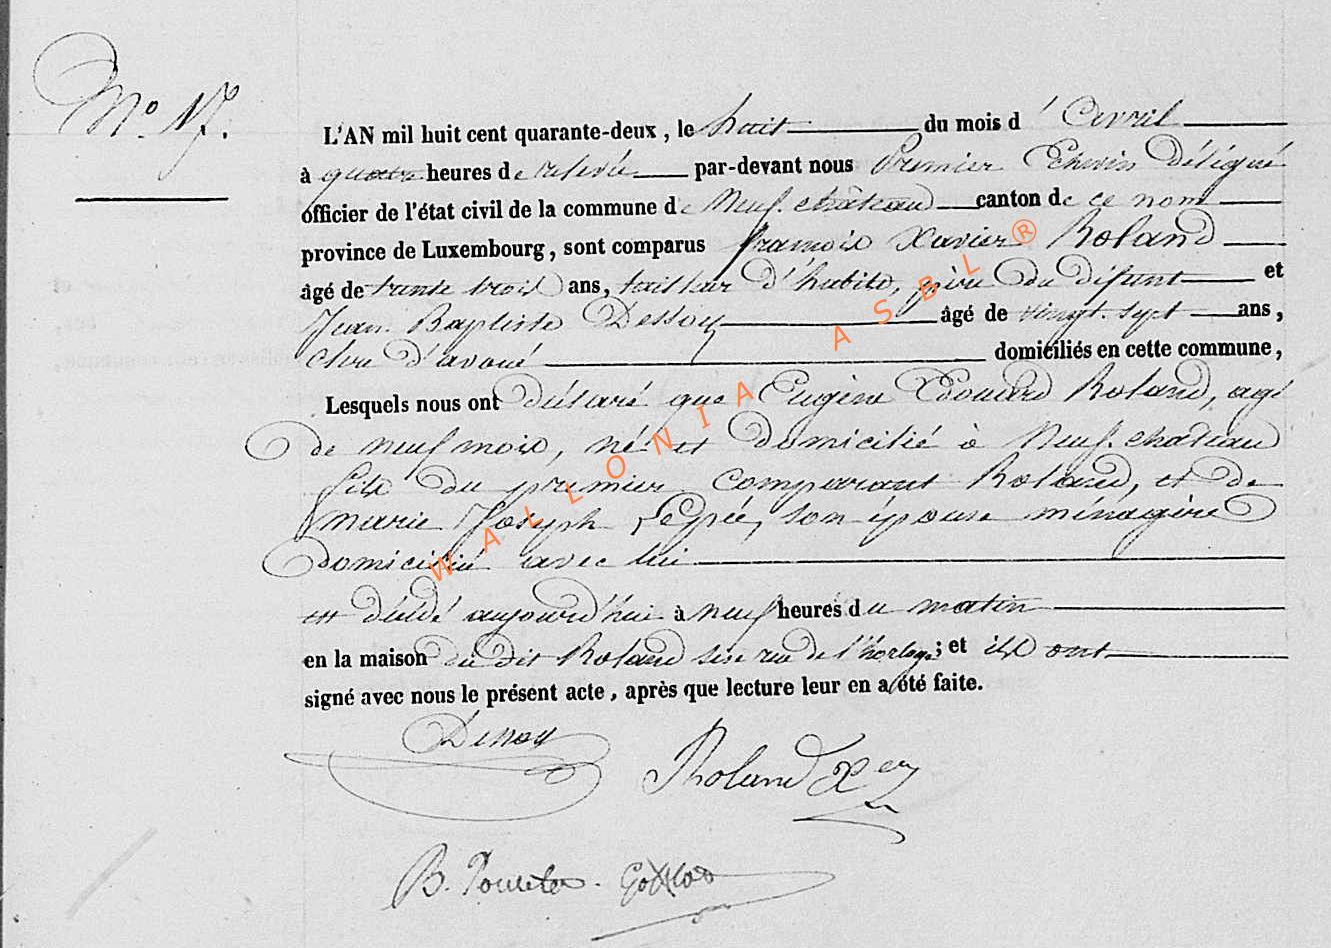 N.º 17.
L'AN mil huit cent quarante-deux, le huit du mois d'Avril
à quatre heures de relevée par-devant nous Premier Echevin Délégué
officier de l'état civil de la commune de Neufchâteau canton de ce nom
province de Luxembourg, sont comparus francois Xavier Roland
âgé de trente trois ans, tailleur d'habits, père du défunt et
Jean Baptiste Dessoy âgé de vingt-sept ans,
clerc d'avoué domiciliés en cette commune,
Lesquels nous ont déclaré que Eugène Edouard Roland, agé
de neuf mois, né et domicilié à Neufchateau
fils du premier comparant Roland, et de
marie Joseph Lepée, son épouse ménagère
domicilié avec lui
est décédé aujourd'hui à neuf heures du matin
en la maison du dit Roland sise rue de l'horloge; et ils ont
signé avec nous le présent acte, après que lecture leur en a été faite.
Dessoy
Roland Xer
B.
WALLONIA ASBL ®